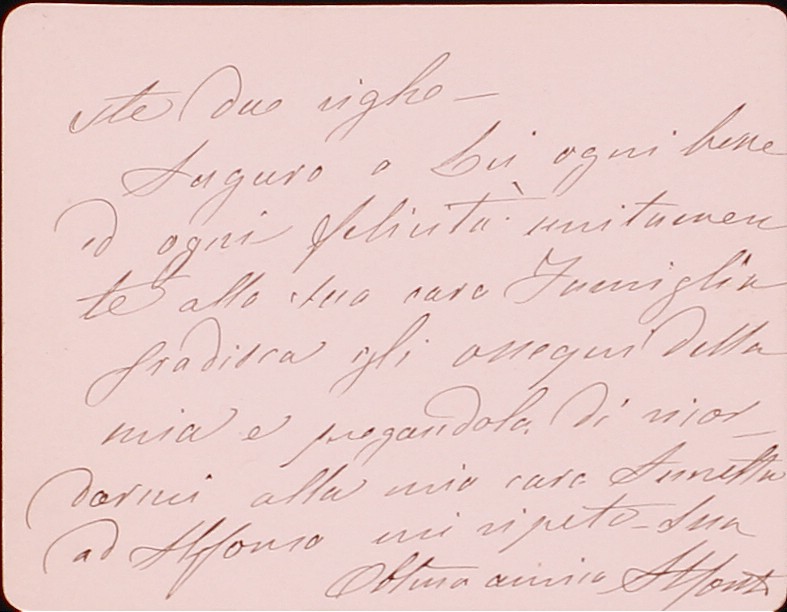 ste due righe —
Auguro a Lei ogni bene
ed ogni felicità unitamen
te alla sua cara Famiglia
gradisca gli ossequi della
mia e pregandola di ricor_
darmi alla mia cara
ad Alfonso mi ripeto — Sua
amica